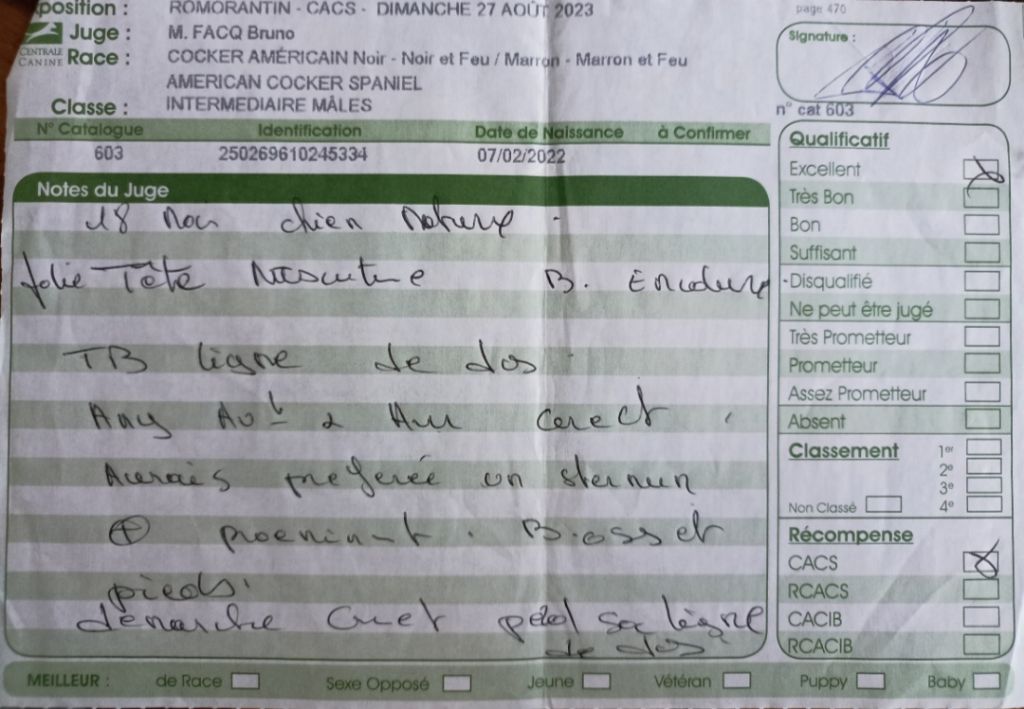 position : ROMORANTIN - CACS - DIMANCHE 27 AOÛT 2023
page 470
Juge : M. FACQ Bruno
CENTRALE CANINE
Race : COCKER AMÉRICAIN Noir - Noir et Feu / Marron - Marron et Feu
AMERICAN COCKER SPANIEL
Classe : INTERMEDIAIRE MÂLES
Signature :
n° cat 603
N° Catalogue Identification Date de Naissance à Confirmer
603 250269610245334 07/02/2022
Notes du Juge
18 moi chien
Jolie Tête Masculine B. Encolure
TB ligne de dos
Ang Avt & Arr correct
Aurais preferée un sternum
⊕ proeminent. B. oss et
pieds.
démarche perd sa ligne
de dos
Qualificatif
Excellent
Très Bon
Bon
Suffisant
Disqualifié
Ne peut être jugé
Très Prometteur
Prometteur
Assez Prometteur
Absent
Classement 1er
2e
3e
Non Classé 4e
Récompense
CACS
RCACS
CACIB
RCACIB
MEILLEUR : de Race Sexe Opposé Jeune Vétéran Puppy Baby